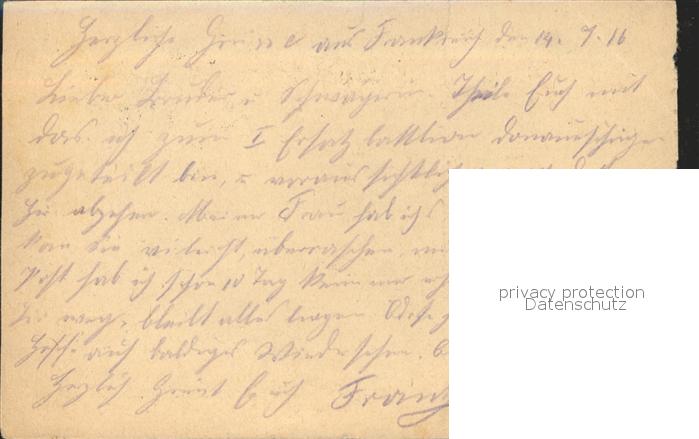 Herzliche Grüsse aus Frankreich den 14. 7. 16
Lieber Bruder u Schwägerin. Theile Euch mit
das ich zum I Ersatz battlion donaueschingen
zugeteilt bin, u voraussichtlich
hir abgehen. Meiner Frau hab ichs
kan sie vileicht, überraschen,
Post hab ich schon 10 Tag keine mer
bleibt alles liegen
Hoffe auf baldiges Wiedersehen.
Herzlich Grüst Euch Franz
privacy protection
Datenschutz